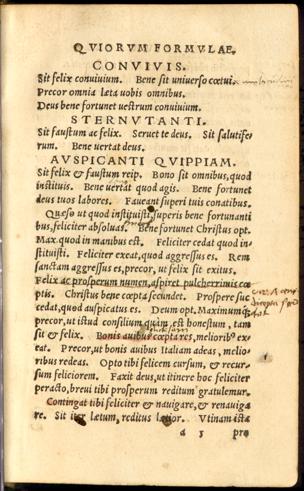 QVIORVM FORMVLAE.
CONVIVIS.
Sit felix conuiuium. Bene sit uniuerso cœtui.
Precor omnia læta uobis omnibus.
Deus bene fortunet uestrum conuiuium.
STERNVTANTI.
Sit faustum ac felix. Seruet te deus. Sit salutife
rum. Bene uertat deus.
AVSPICANTI QVIPPIAM.
Sit felix & faustum reip. Bono sit omnibus, quod
instituis. Bene uertat quod agis. Bene fortunet
deus tuos labores. Faueant superi tuis conatibus.
Quæso ut quod instituisti, superis bene fortunanti
bus, feliciter absoluas. Bene fortunet Christus opt.
Max. quod in manibus est. Feliciter cedat quod in
stituisti. Feliciter exeat, quod aggressus es. Rem
sanctam aggressus es, precor, ut felix sit exitus.
Felix ac prosperum numen, aspiret pulcherrimis cœ
ptis. Christus bene cœpta secundet. Prospere suc
cedat, quod auspicatus es. Deum opt. Maximumq;
precor, ut istud consilium quàm est honestum, tam
sit & felix. Bonis auibus cœpta res, meliorib⁹ ex
eat. Precor, ut bonis auibus Italiam adeas, melio
ribus redeas. Opto tibi felicem cursum, & recur
sum feliciorem. Faxit deus, ut itinere hoc feliciter
peracto, breui tibi prosperum reditum gratulemur.
Contingat tibi feliciter & nauigare, & renauiga
re. Sit iter lætum, reditus lætior. Vtinam ista
a 5 pro